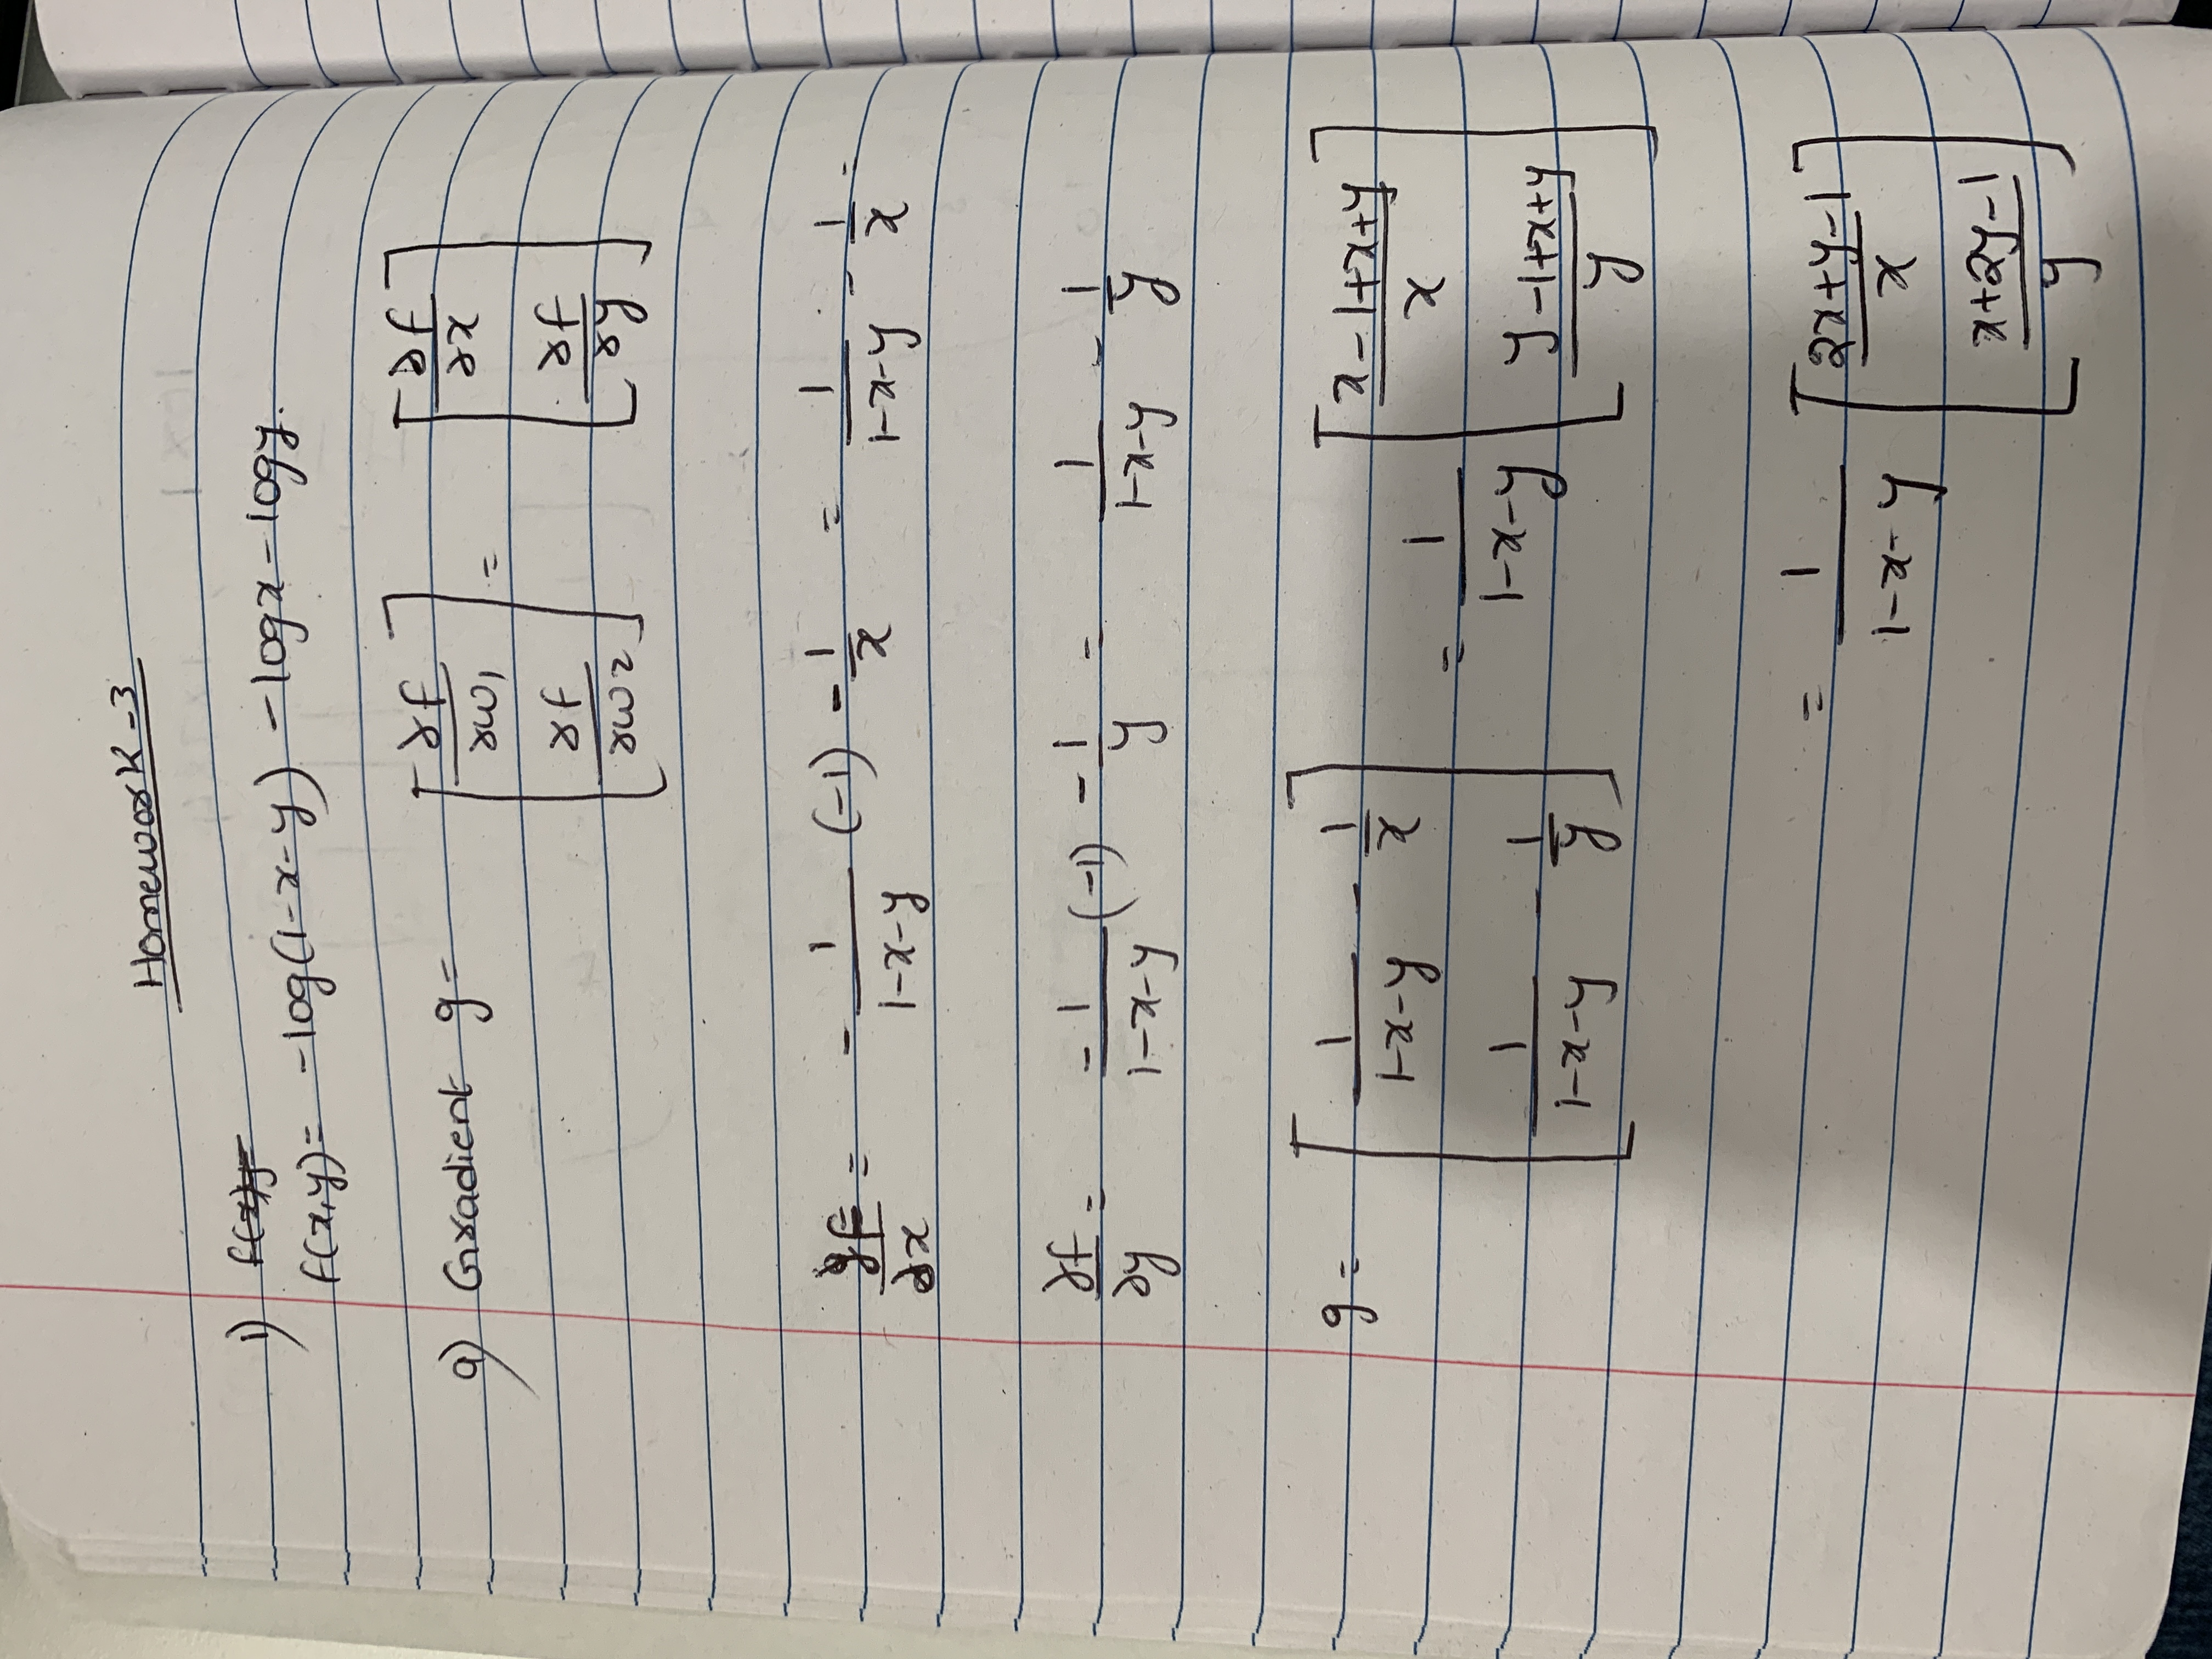 Homework-3
1) f(x)y=
f(x,y)= -log(1-x-y) -logx-logy.
a) Gradient g= [∂f/∂w1 ∂f/∂w2] = [∂f/∂x ∂f/∂y]
∂f/∂x = - 1/(1-x-y) (-1) - 1/x = 1/(1-x-y) - 1/x -
∂f/∂y = -1/(1-x-y) (-1) - 1/y = 1/(1-x-y) - 1/y
g= [1/(1-x-y) - 1/x 1/(1-x-y) - 1/y] = 1/(1-x-y) [(x-1+x+y)/x (y-1+x+y)/y]
= 1/(1-x-y) [(2x+y-1)/x (x+2y-1)/y]